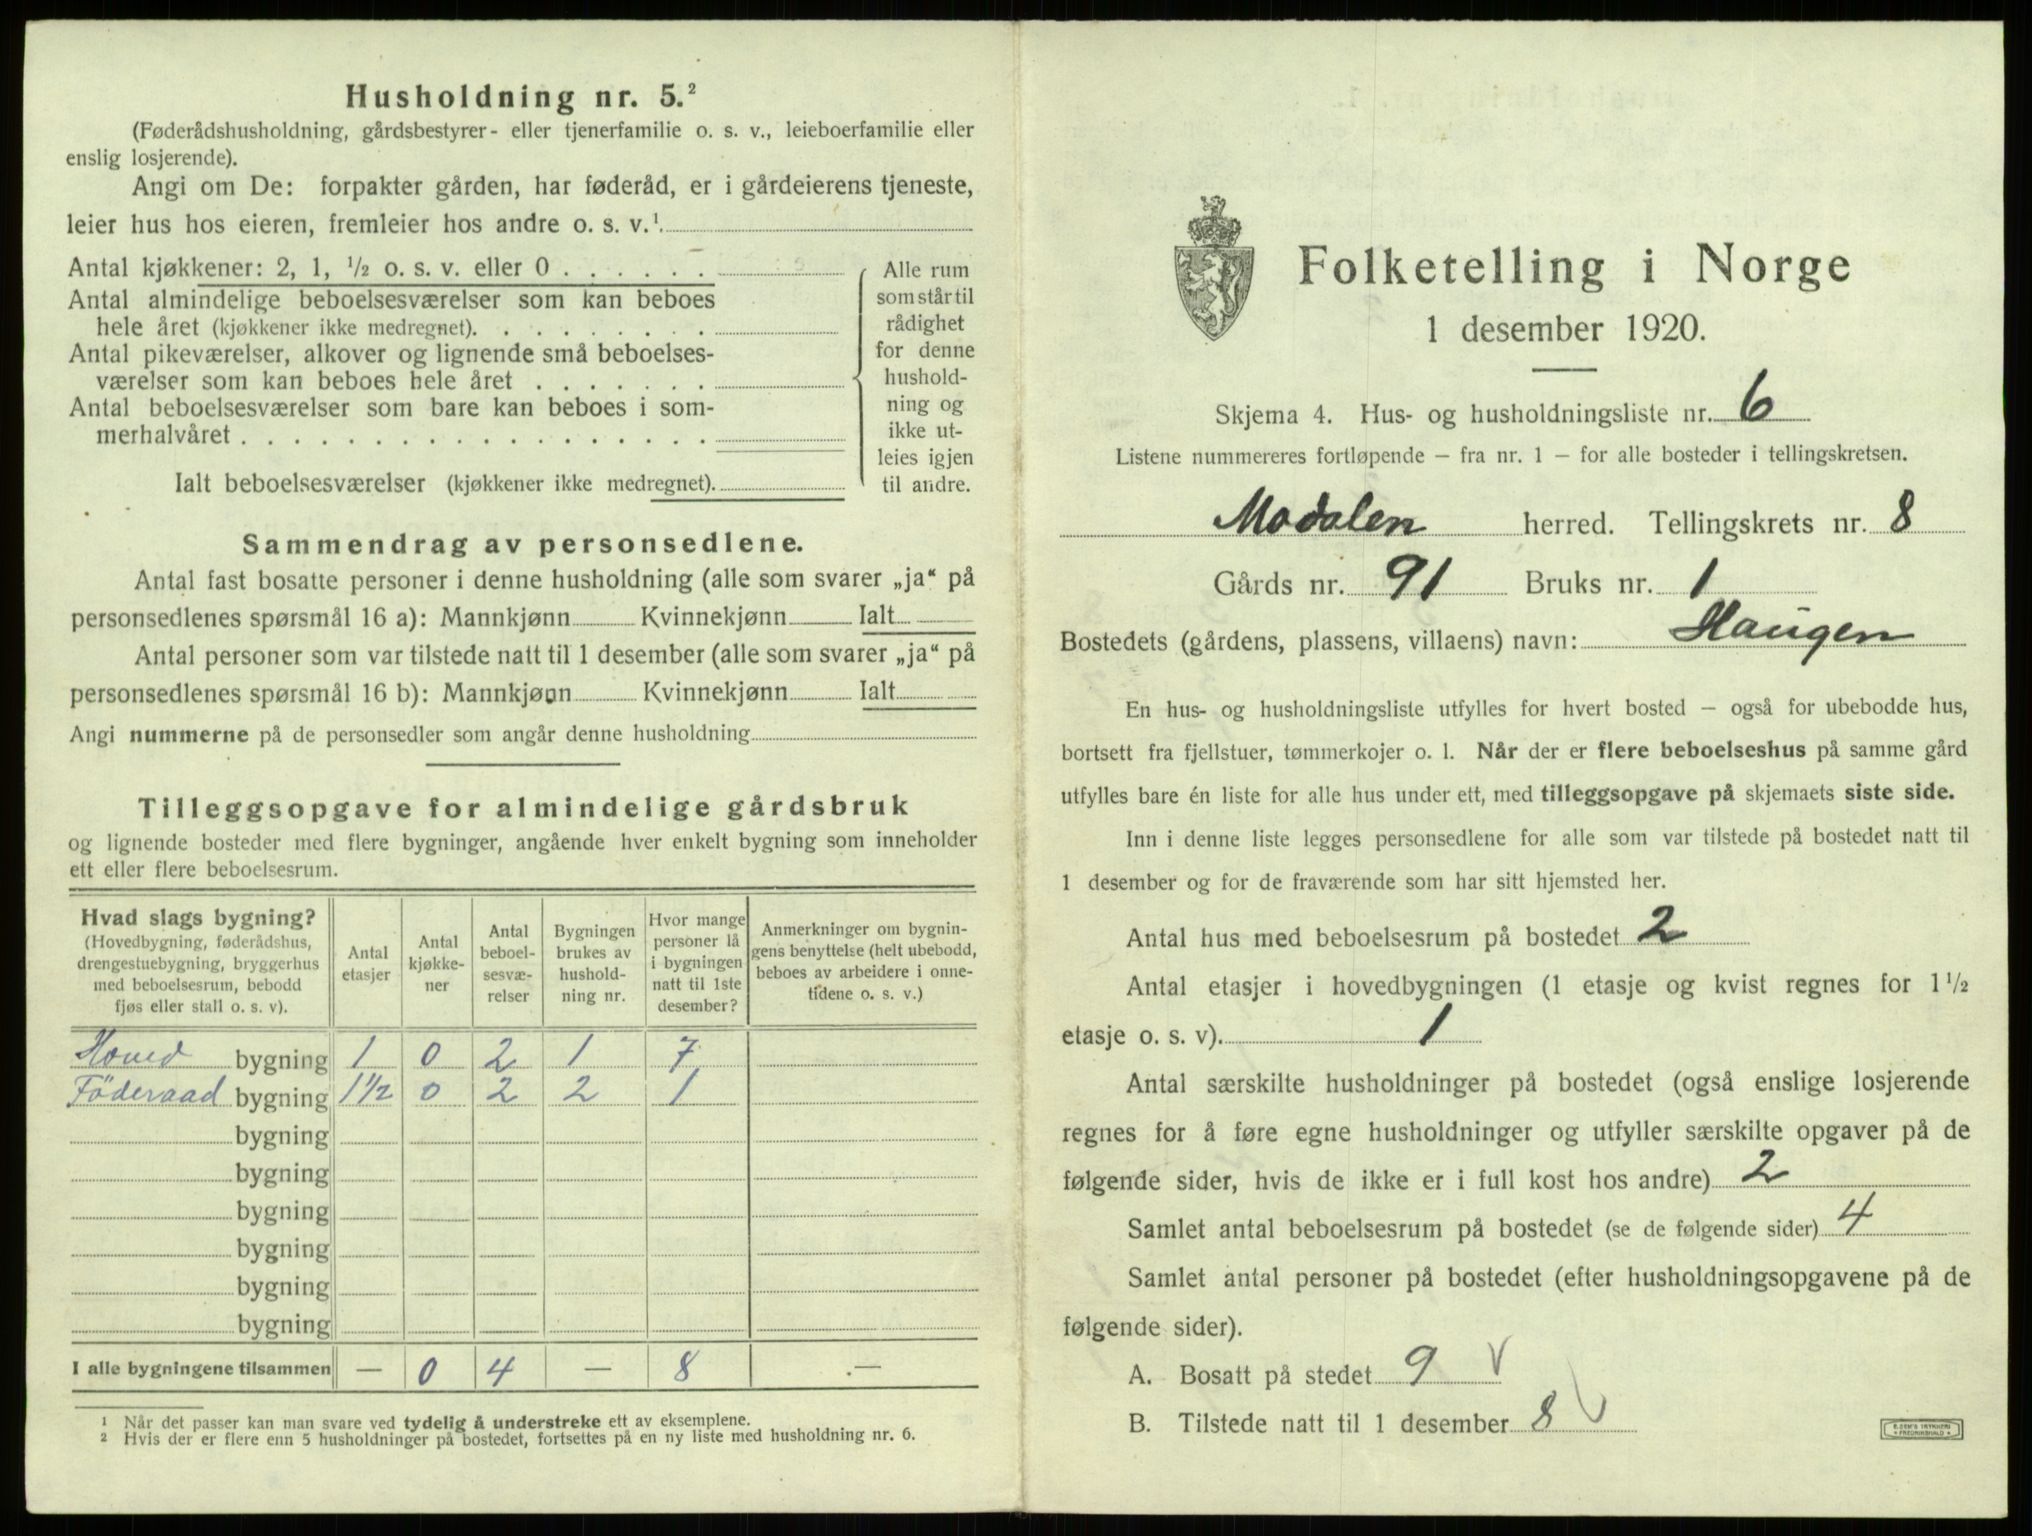 Husholdning nr. 5.²
(Føderådshusholdning, gårdsbestyrer- eller tjenerfamilie o. s. v., leieboerfamilie eller
enslig losjerende).
Angi om De: forpakter gården, har føderåd, er i gårdeierens tjeneste,
leier hus hos eieren, fremleier hos andre o. s. v.¹
Antal kjøkkener: 2, 1, ½ o. s. v. eller 0 . . . . . .
Antal almindelige beboelsesværelser som kan beboes
hele året (kjøkkener ikke medregnet). . . . . . . . .
Antal pikeværelser, alkover og lignende små beboelses-
værelser som kan beboes hele året . . . . . . .
Antal beboelsesværelser som bare kan beboes i som-
merhalvåret . . . . . . . . . . . . . . . . . .
Ialt beboelsesværelser (kjøkkener ikke medregnet).
Alle rum
som står til
rådighet
for denne
hushold-
ning og
ikke ut-
leies igjen
til andre.
Sammendrag av personsedlene.
Antal fast bosatte personer i denne husholdning (alle som svarer „ja“ på
personsedlenes spørsmål 16 a): Mannkjønn Kvinnekjønn Ialt
Antal personer som var tilstede natt til 1 desember (alle som svarer „ja“ på
personsedlenes spørsmål 16 b): Mannkjønn Kvinnekjønn Ialt
Angi nummerne på de personsedler som angår denne husholdning
Tilleggsopgave for almindelige gårdsbruk
og lignende bosteder med flere bygninger, angående hver enkelt bygning som inneholder
ett eller flere beboelsesrum.
Hvad slags bygning?
(Hovedbygning, føderådshus,
drengestuebygning, bryggerhus
med beboelsesrum, bebodd
fjøs eller stall o. s. v).
Antal
etasjer
Antal
kjøkke-
ner
Antal
beboel-
sesvæ-
relser
Bygningen
brukes av
hushold-
ning nr.
Hvor mange
personer lå
i bygningen
natt til 1ste
desember?
Anmerkninger om bygnin-
gens benyttelse (helt ubebodd,
beboes av arbeidere i onne-
tidene o. s. v.)
Hoved bygning 1 0 2 1 7
Föderaad bygning 1½ 0 2 2 1
bygning
bygning
bygning
bygning
bygning
bygning
I alle bygningene tilsammen — 0 4 — 8 —
¹ Når det passer kan man svare ved tydelig å understreke ett av eksemplene.
² Hvis der er flere enn 5 husholdninger på bostedet, fortsettes på en ny liste med husholdning nr. 6.
Folketelling i Norge
1 desember 1920.
Skjema 4. Hus- og husholdningsliste nr. 6
Listene nummereres fortløpende — fra nr. 1 — for alle bosteder i tellingskretsen.
Modalen herred. Tellingskrets nr. 8
Gårds nr. 91 Bruks nr. 1
Bostedets (gårdens, plassens, villaens) navn: Haugen
En hus- og husholdningsliste utfylles for hvert bosted — også for ubebodde hus,
bortsett fra fjellstuer, tømmerkojer o. l. Når der er flere beboelseshus på samme gård
utfylles bare én liste for alle hus under ett, med tilleggsopgave på skjemaets siste side.
Inn i denne liste legges personsedlene for alle som var tilstede på bostedet natt til
1 desember og for de fraværende som har sitt hjemsted her.
Antal hus med beboelsesrum på bostedet 2
Antal etasjer i hovedbygningen (1 etasje og kvist regnes for 1½
etasje o. s. v). 1
Antal særskilte husholdninger på bostedet (også enslige losjerende
regnes for å føre egne husholdninger og utfyller særskilte opgaver på de
følgende sider, hvis de ikke er i full kost hos andre) 2
Samlet antal beboelsesrum på bostedet (se de følgende sider) 4
Samlet antal personer på bostedet (efter husholdningsopgavene på de
følgende sider).
A. Bosatt på stedet 9 V
B. Tilstede natt til 1 desember 8 V